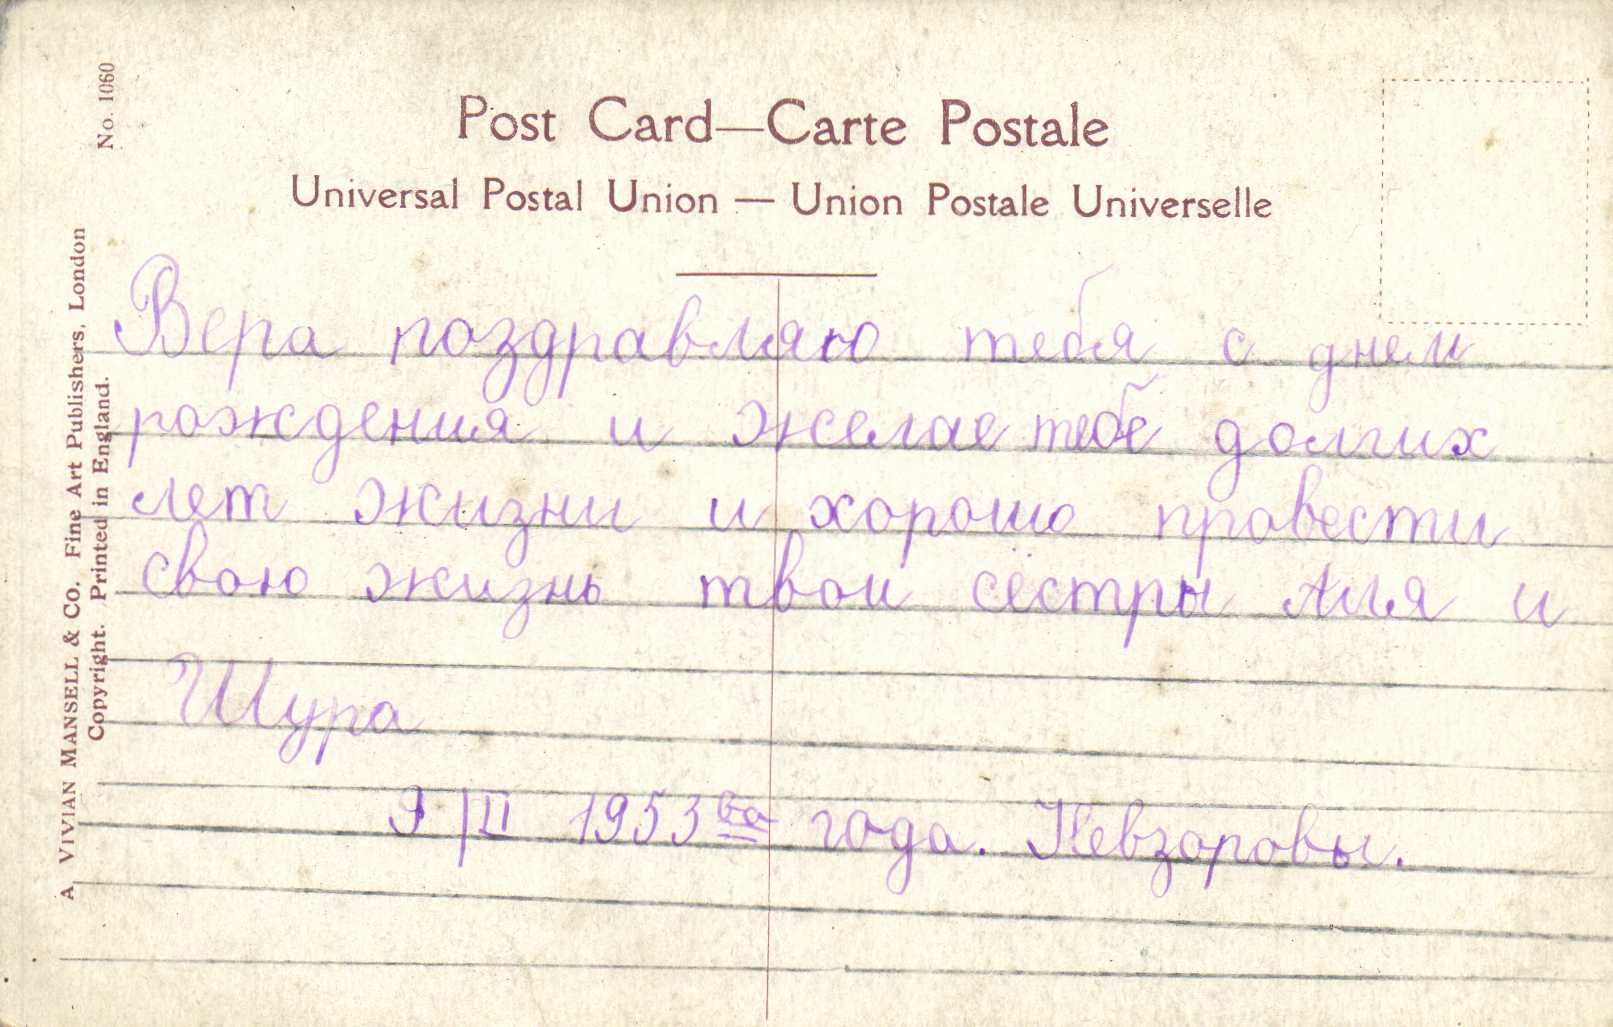 No. 1060
Post Card—Carte Postale
Universal Postal Union — Union Postale Universelle
A VIVIAN MANSELL & Co. Fine Art Publishers, London
Copyright. Printed in England.
Вера поздравляю тебя с днем
рождения и желае тебе долгих
лет жизни и хорошо провести
свою жизнь твои сёстры Аля и
Шура
/II 1953 го года. Невзоровы.